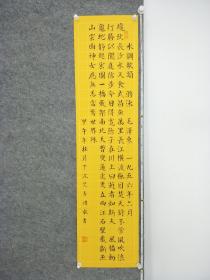 水調歌頭 游泳 毛澤東 一九五六年六月
纔飲長沙水又食武昌魚萬里長江橫渡極目楚天舒不管風吹浪
打勝似閒庭信步今日得寬餘子在川上曰逝者如斯夫風檣動
龜蛇靜起宏圖一橋飛架南北天塹變通途更立西江石壁截斷巫
山雲雨神女應無恙當驚世界殊
甲午年桂月于